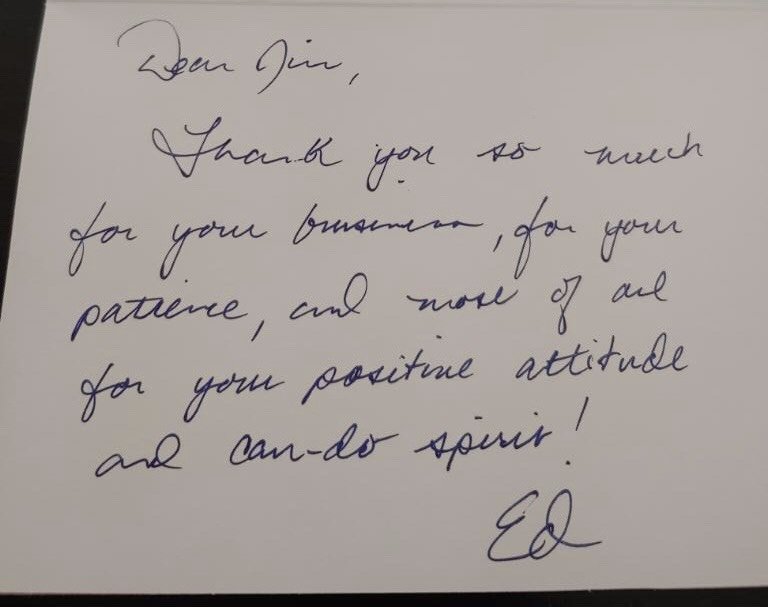 Dear Jim,
Thank you so much
for your business, for your
patience, and most of all
for your positive attitude
and can-do spirit!
Ed